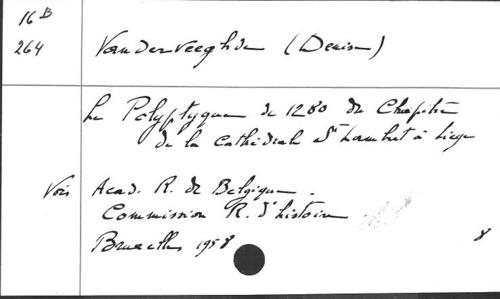 16 B
264
Vanderveeghde (Denise)
Le Polyptyque de 1280 du Chapitre
de la cathédrale St Lambert à Liège
Vois Acad. R. de Belgique.
Commission R. d'histoire.
Bruxelles 1958
8